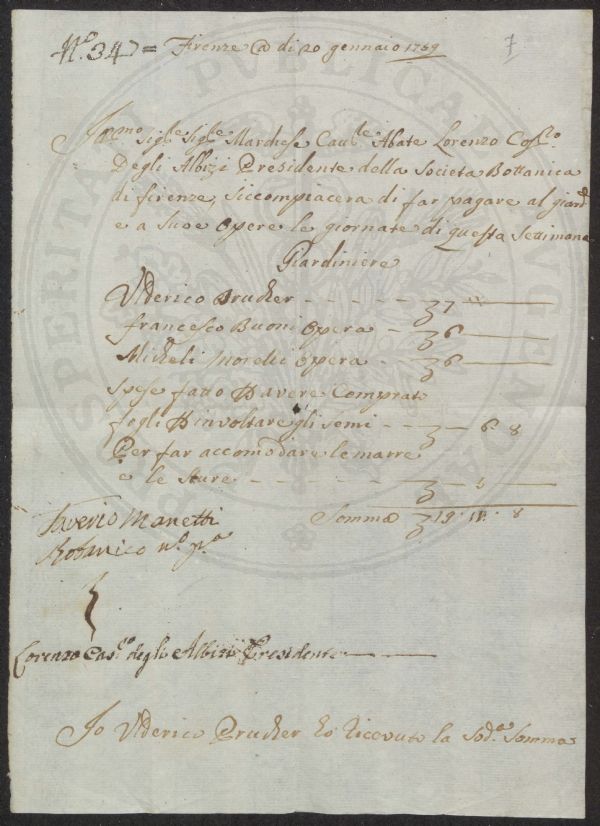 N.º 34 = Firenze @ di 20 gennaio 1759
7
Ill.mo Sig.re Sig.re Marchese Cau.le Abate Lorenzo
Degli Albizi Presidente della Societa Bottanica
di firenze, Siccompiacera di far pagare al giard.
e a Suoe Opere le giornate di questa Settimana
Giardiniere
Ulderico Prucker - - - - - 7 "
francesco Buoni Opera - 6
Micheli Opera - 6
Spese fatto D havere Comprato
fogli D involtare gli Semi - - 6 · 8
Per far accomodare le marre
e le Sture - - - - - - 5
Somma 19 · 11 · 8
Saverio Manetti
Botanico
Lorenzo Cas.º degli Albizi Presidente
Io Ulderico Prucker hò Ricevuto la Sod.ª Somma
PROSPERITATI PUBLICAE AUGENDAE